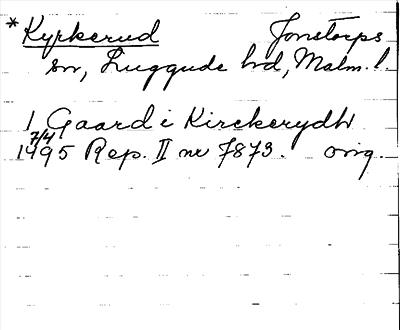 *Kyrkerud Jonstorps
sn, Luggude hd, Malm. l.
1 Gaard i Kirckerydh
7/4
1495 Rep. II nr 7873. orig.